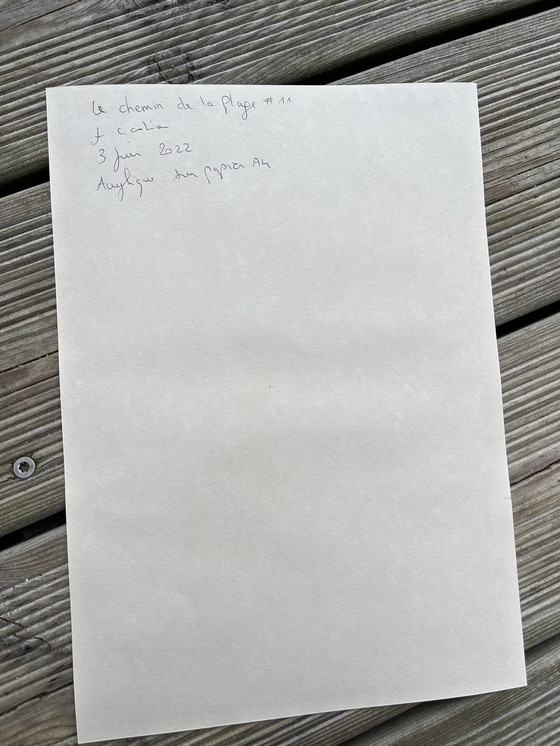 Le chemin de la plage # 11
3 juin 2022
Acrylique sur papier A4